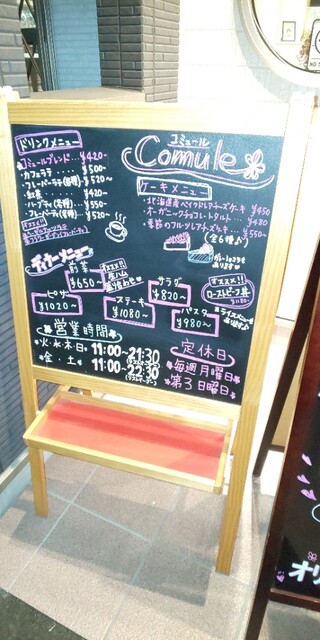 ドリンクメニュー
・コミュールブレンド…¥420〜
・カフェラテ … ¥500〜
・フレーバーラテ(各種)…¥520〜
・紅茶 … ¥420〜
・ハーブティ(各種)…¥550〜
・フレーバーティ(各種)…¥550〜
コミュール
Comule
ケーキメニュー
・北海道産ベイクドレアチーズケーキ ¥450
・オーガニックチョコレートタルト … ¥420
・季節のフルーツレアチーズケーキ … ¥550
(全6種から)
ディナーメニュー
前菜
¥650〜
オススメ!!
生ハム
サラダ
¥820〜
オススメ!!
ローストビーフ丼
¥1180〜
ピザ
¥1020〜
ステーキ
¥1080〜
パスタ
¥980〜
営業時間
火・水・木・日: 11:00〜21:30
金・土: 11:00〜22:30
定休日
毎週月曜日
第3日曜日
オリ